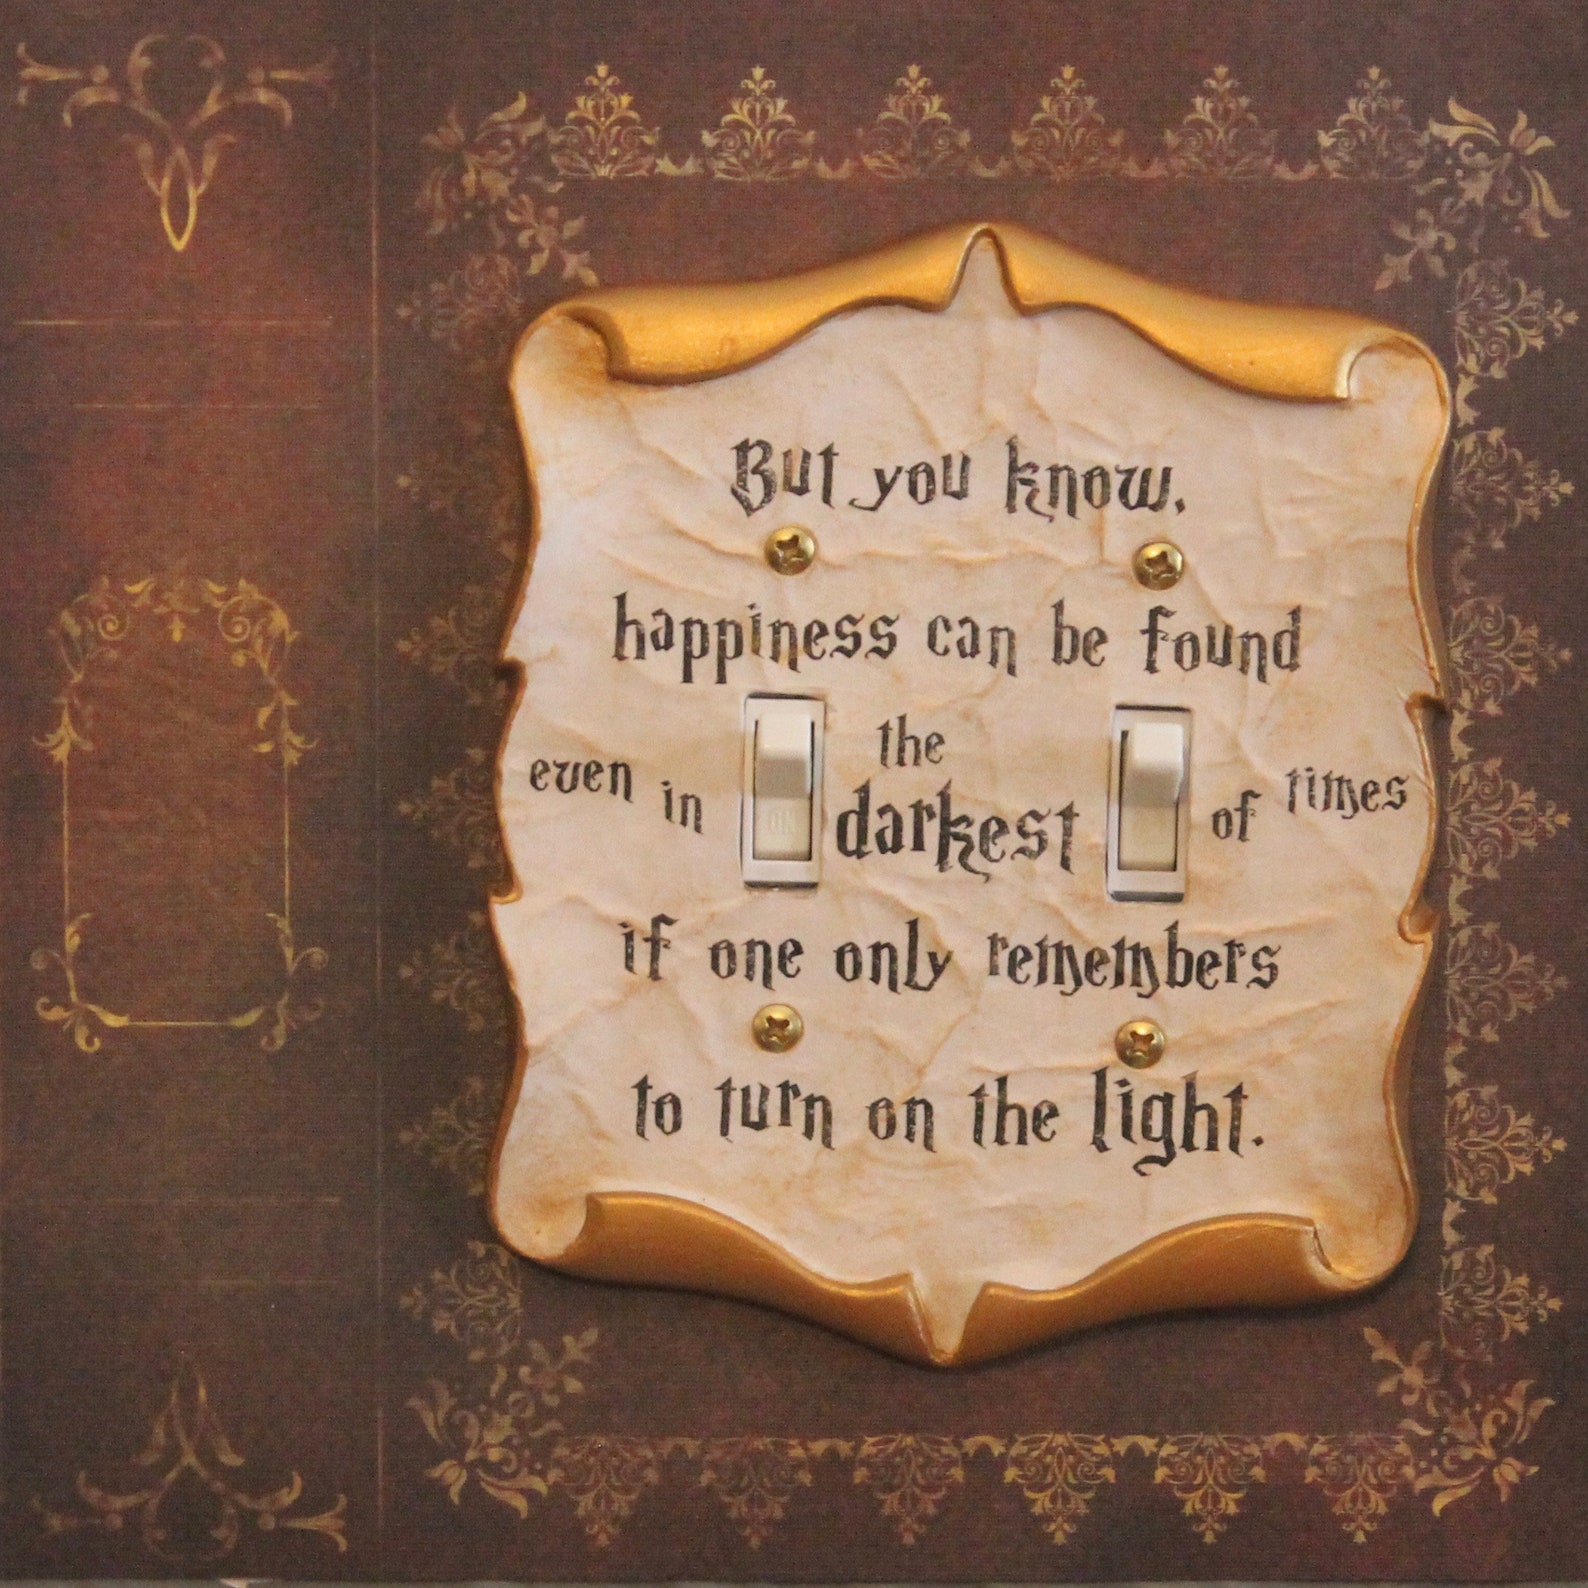 But you know,
happiness can be found
even in the darkest of times
if one only remembers
to turn on the light.
ON